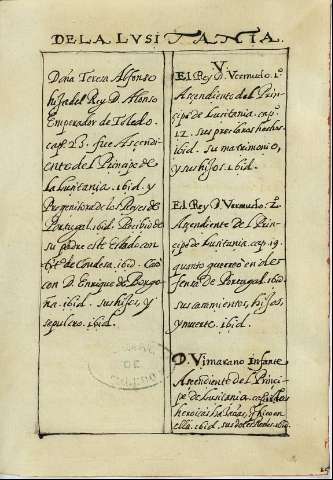 DE LA LVSITANIA.
Doña Teresa Alfonso
hija del Rey D. Alonso
Emperador de Toledo.
cap. 23. fue Ascendi-
ente del Principe de
la Lusitania. ibid. y
Progenitora de los Reyes de
Portugal. ibid. Recibio de
su padre este Estado con
tit. de Condesa. ibid. Casó
con D. Enrique de Borgo-
ña. ibid. sus hijos, y
sepulcro. ibid.
V.
El Rey D. Vermudo. 1.º
Ascendiente del Prin-
cipe de Lusitania. cap.
12. sus preclaros hechos
ibid. su matrimonio,
y sus hijos. ibid.
El Rey D. Vermudo. 2.º
Ascendiente del Prin-
cipe de Lusitania. cap. 19.
quanto guerreó en de-
fensa de Portugal. ibid.
sus casamientos, hijos,
y muerte. ibid.
D. Vimarano Infante
Ascendiente del Princi-
pe de Lusitania. cap.
heroicas hazañas, q hizo en
ella. ibid. sus
DE
TOLEDO